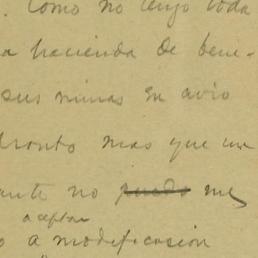 . Como no tengo toda
a hacienda de bene-
sus minas su avio
pronto mas que un
ante no puedo me
aceptar
o a modificasion